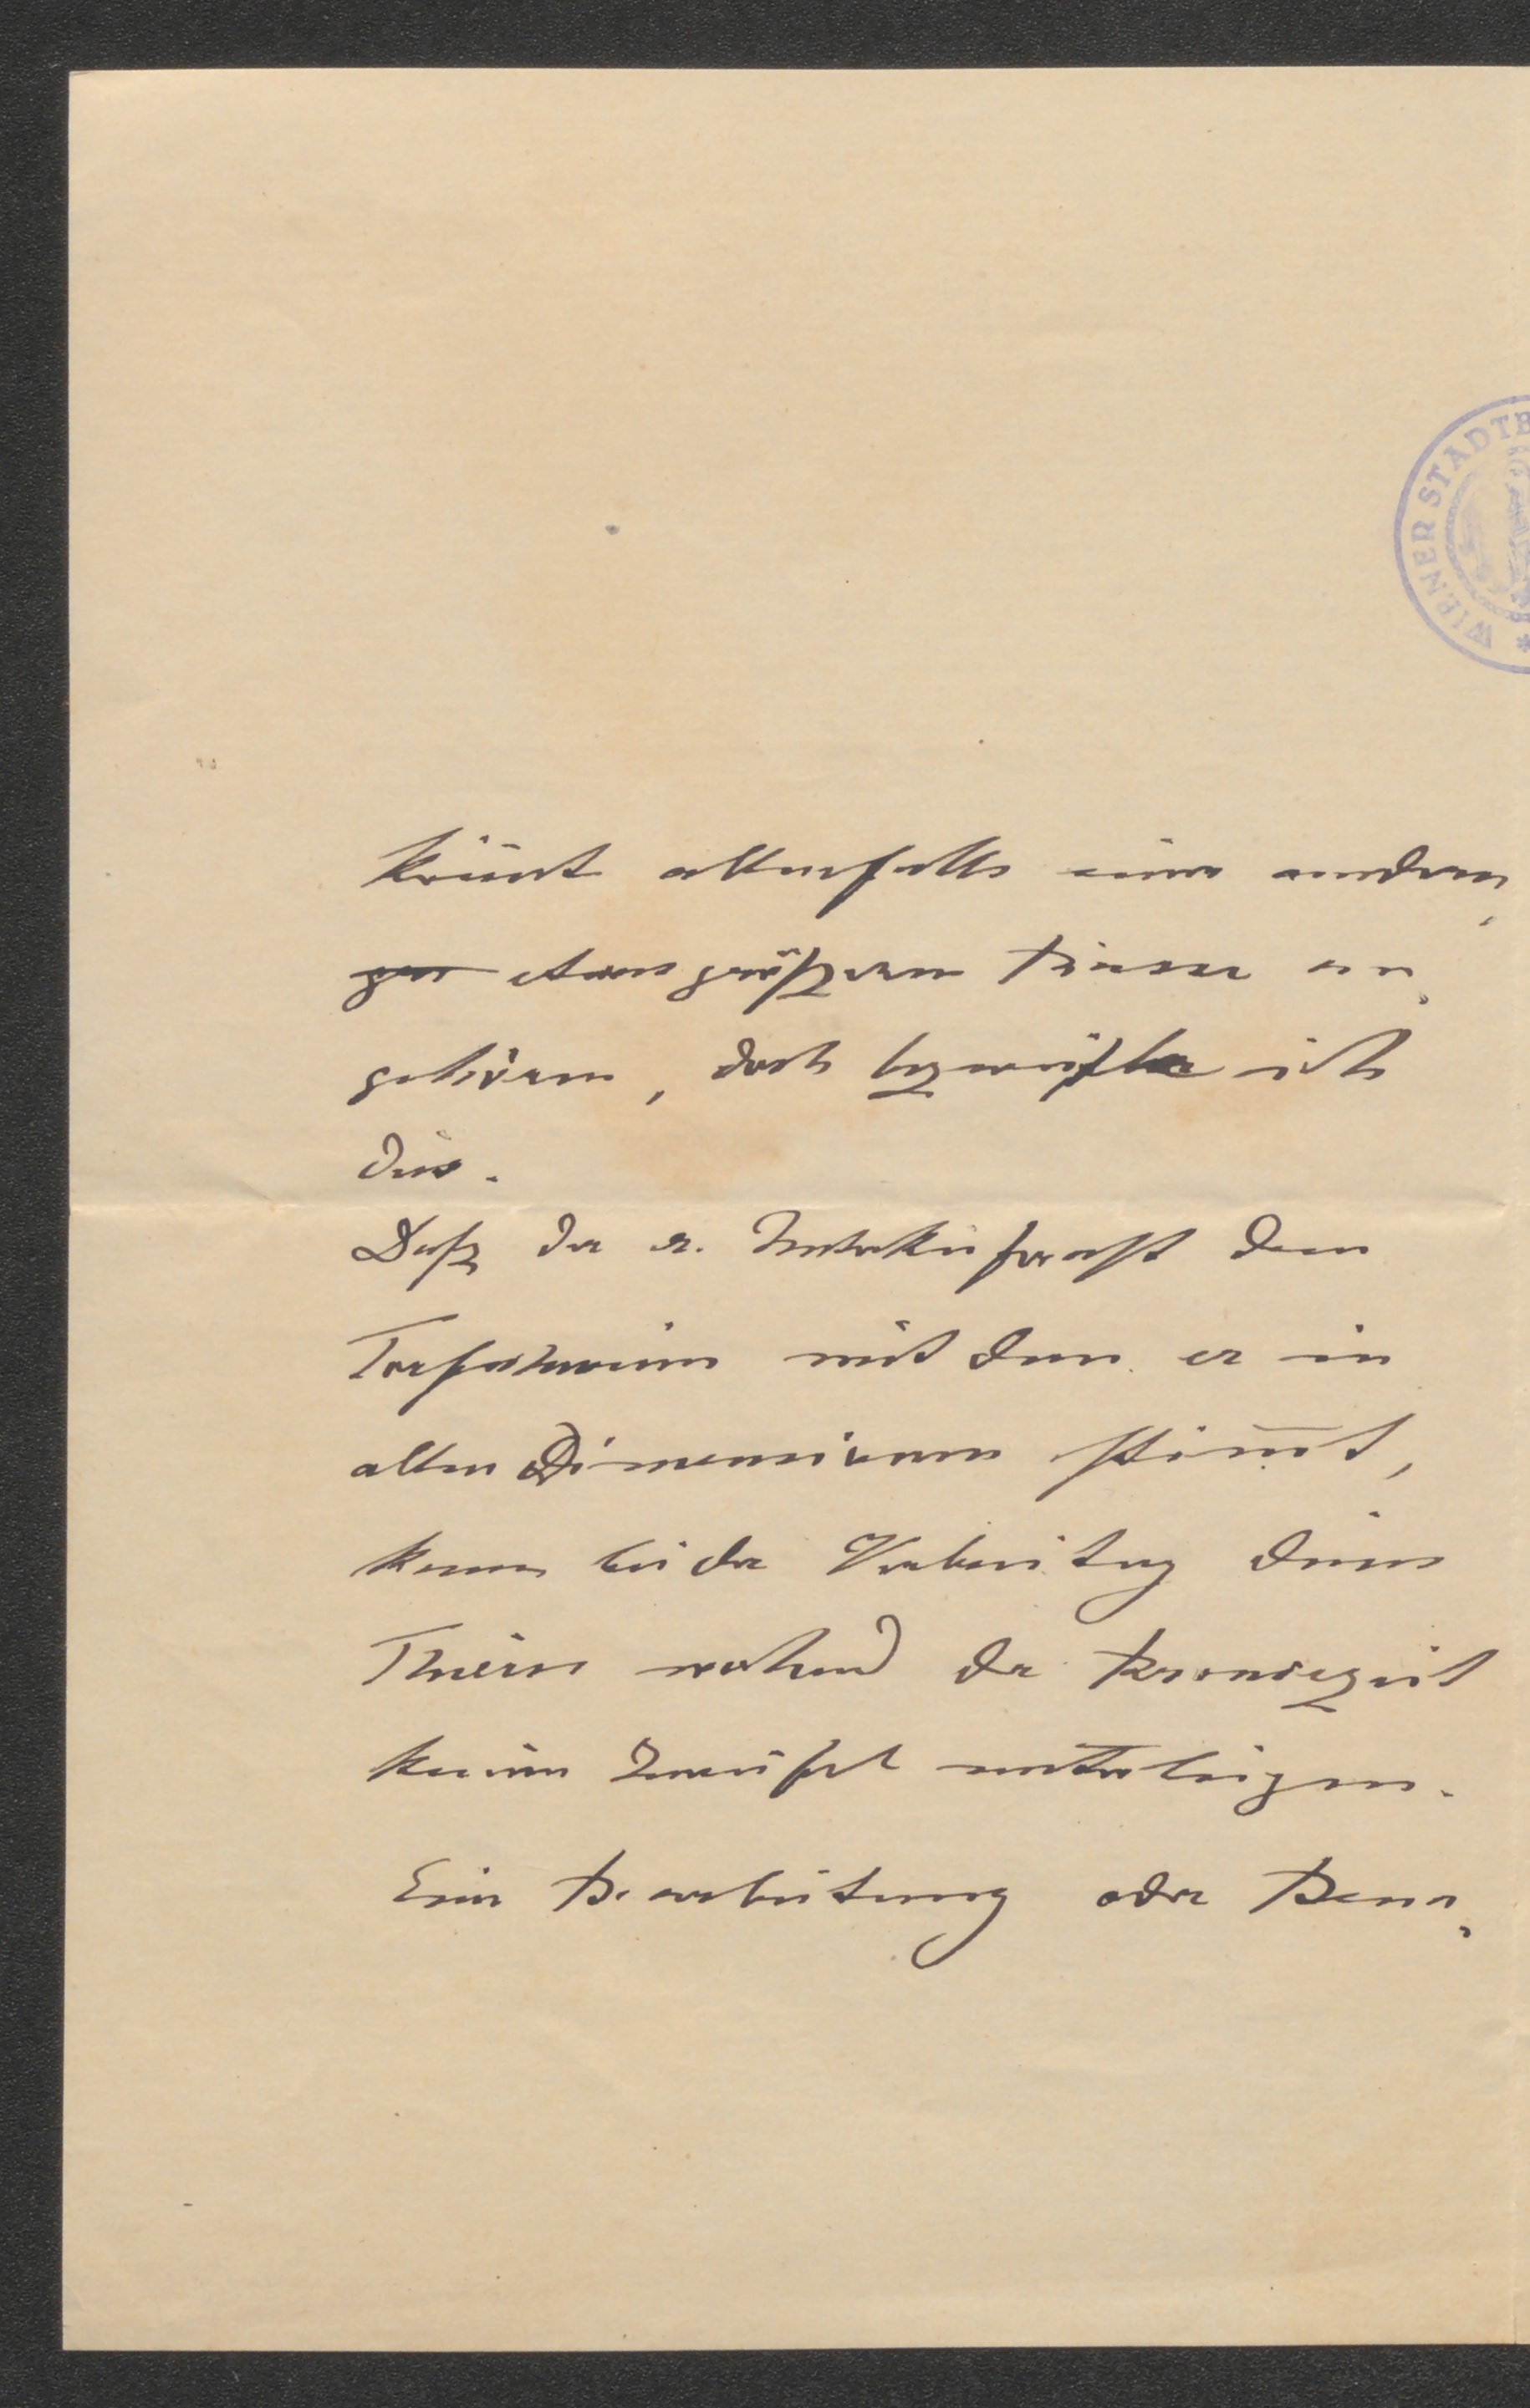 WIENER STADTB
könnt allenfalls einer anderen,
gar etwas größeren Rasse an¬
gehören, doch bezweifle ich
dies.
Daß der r. Unterkiefer
Torfschwein mit dem er in
allen Dimensionen stim̅t,
kann bei der Verbreitung dieses
Thieres während der Bronzezeit
keinem Zweifel unterliegen.
Eine Bearbeitung oder Benn¬